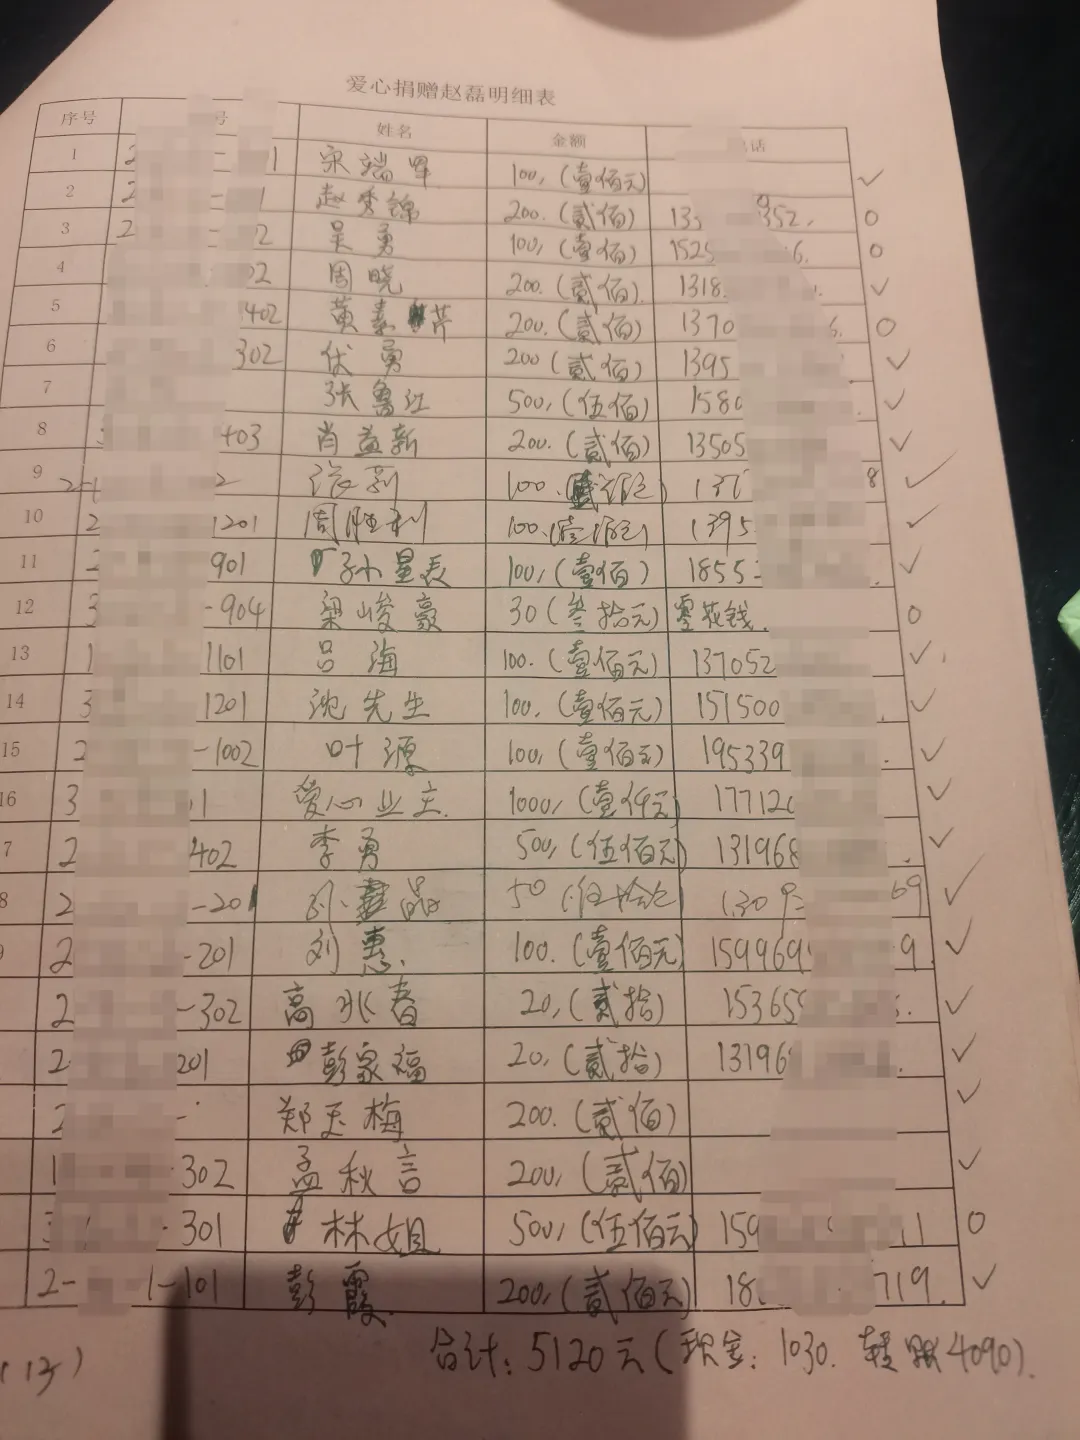 爱心捐赠赵磊明细表
序号 号 姓名 金额 电话
1 2 -1 宋端军 100,(壹佰元) ✓
2 2 1 赵秀锦 200.(贰佰) 13 352. 0
3 2 2 吴勇 100,(壹佰元) 1525 6. 0
4 02 周晓 200.(贰佰). 1318 ✓
5 402 黄素芹 200.(贰佰) 1370 6. 0
6 302 伏勇 200(贰佰) 1395 ✓
7 张鲁江 500,(伍佰) 1580 ✓
8 3 403 肖益新 200.(贰佰) 13505 ✓
9 2-1 2 100. 137 8 ✓
10 2 1201 周胜利 100.(壹佰元) 1395 ✓
11 2 901 孙星辰 100,(壹佰) 1855 ✓
12 3 -904 梁峻豪 30(叁拾元) 零花钱. 0
13 1 1101 吕海 100.(壹佰元) 137052 ✓
14 3 1201 沈先生 100,(壹佰元) 151500 ✓
15 2 -1002 叶源 100,(壹佰元) 195339 ✓
16 3 1 爱心业主. 1000,(壹仟元) 17712 ✓
7 2 402 李勇 500,(伍佰元) 131968 ✓
8 2 -201 孙晶 50(伍拾元) 1309 69 ✓
2 -201 刘惠. 100.(壹佰元) 159969 9. ✓
2 -302 高兆春 20,(贰拾) 15365 ✓
2- 201 彭家福 20,(贰拾) 13196 ✓
2 - 郑玉梅 200.(贰佰) ✓
1 -302 孟秋言 200,(贰佰) ✓
3 -301 林姐 500,(伍佰元) 159 11 0
2- 1-101 彭霞. 200,(贰佰元) 18 719. ✓
合计:5120元(现金:1030. 转账4090).
(13)